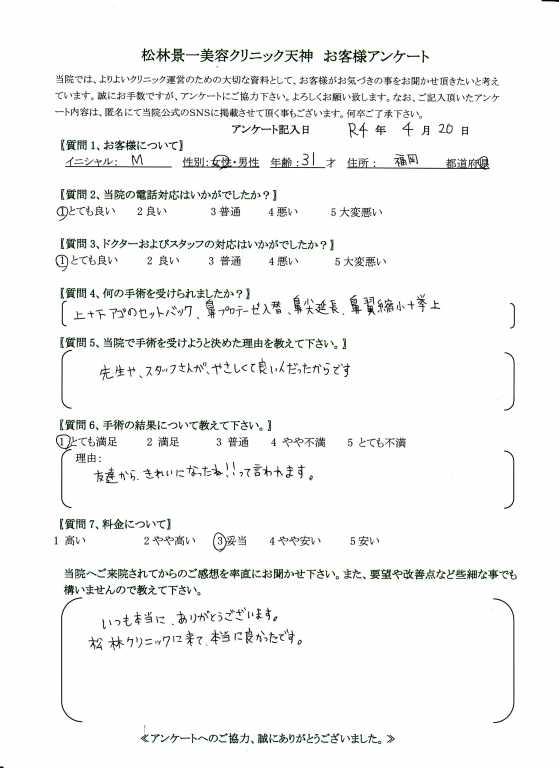 松林景一美容クリニック天神 お客様アンケート
当院では、よりよいクリニック運営のための大切な資料として、お客様がお気づきの事をお聞かせ頂きたいと考え
ています。誠にお手数ですが、アンケートにご協力下さい。よろしくお願い致します。なお、ご記入頂いたアンケ
ート内容は、匿名にて当院公式のSNSに掲載させて頂く事もございます。何卒ご了承下さい。
アンケート記入日 R4 年 4 月 20 日
【質問 1、お客様について】
イニシャル: M 性別:女性・男性 年齢:31才 住所: 福岡 都道府県
【質問 2、当院の電話対応はいかがでしたか?】
1とても良い 2 良い 3 普通 4 悪い 5 大変悪い
【質問 3、ドクターおよびスタッフの対応はいかがでしたか?】
1とても良い 2 良い 3 普通 4 悪い 5 大変悪い
【質問 4、何の手術を受けられましたか?】
上+下アゴのセットバック、鼻プロテーゼ入替、鼻尖延長、鼻翼縮小+挙上
【質問 5、当院で手術を受けようと決めた理由を教えて下さい。】
先生や、スタッフさんが、やさしくて良い人だったからです
【質問 6、手術の結果について教えて下さい。】
1とても満足 2 満足 3 普通 4 やや不満 5 とても不満
理由:
友達から、きれいになったね!!って言われます。
【質問 7、料金について】
1 高い 2 やや高い 3妥当 4 やや安い 5 安い
当院へご来院されてからのご感想を率直にお聞かせ下さい。また、要望や改善点など些細な事でも
構いませんので教えて下さい。
いつも本当に、ありがとうございます。
松林クリニックに来て、本当に良かったです。
≪アンケートへのご協力、誠にありがとうございました。≫